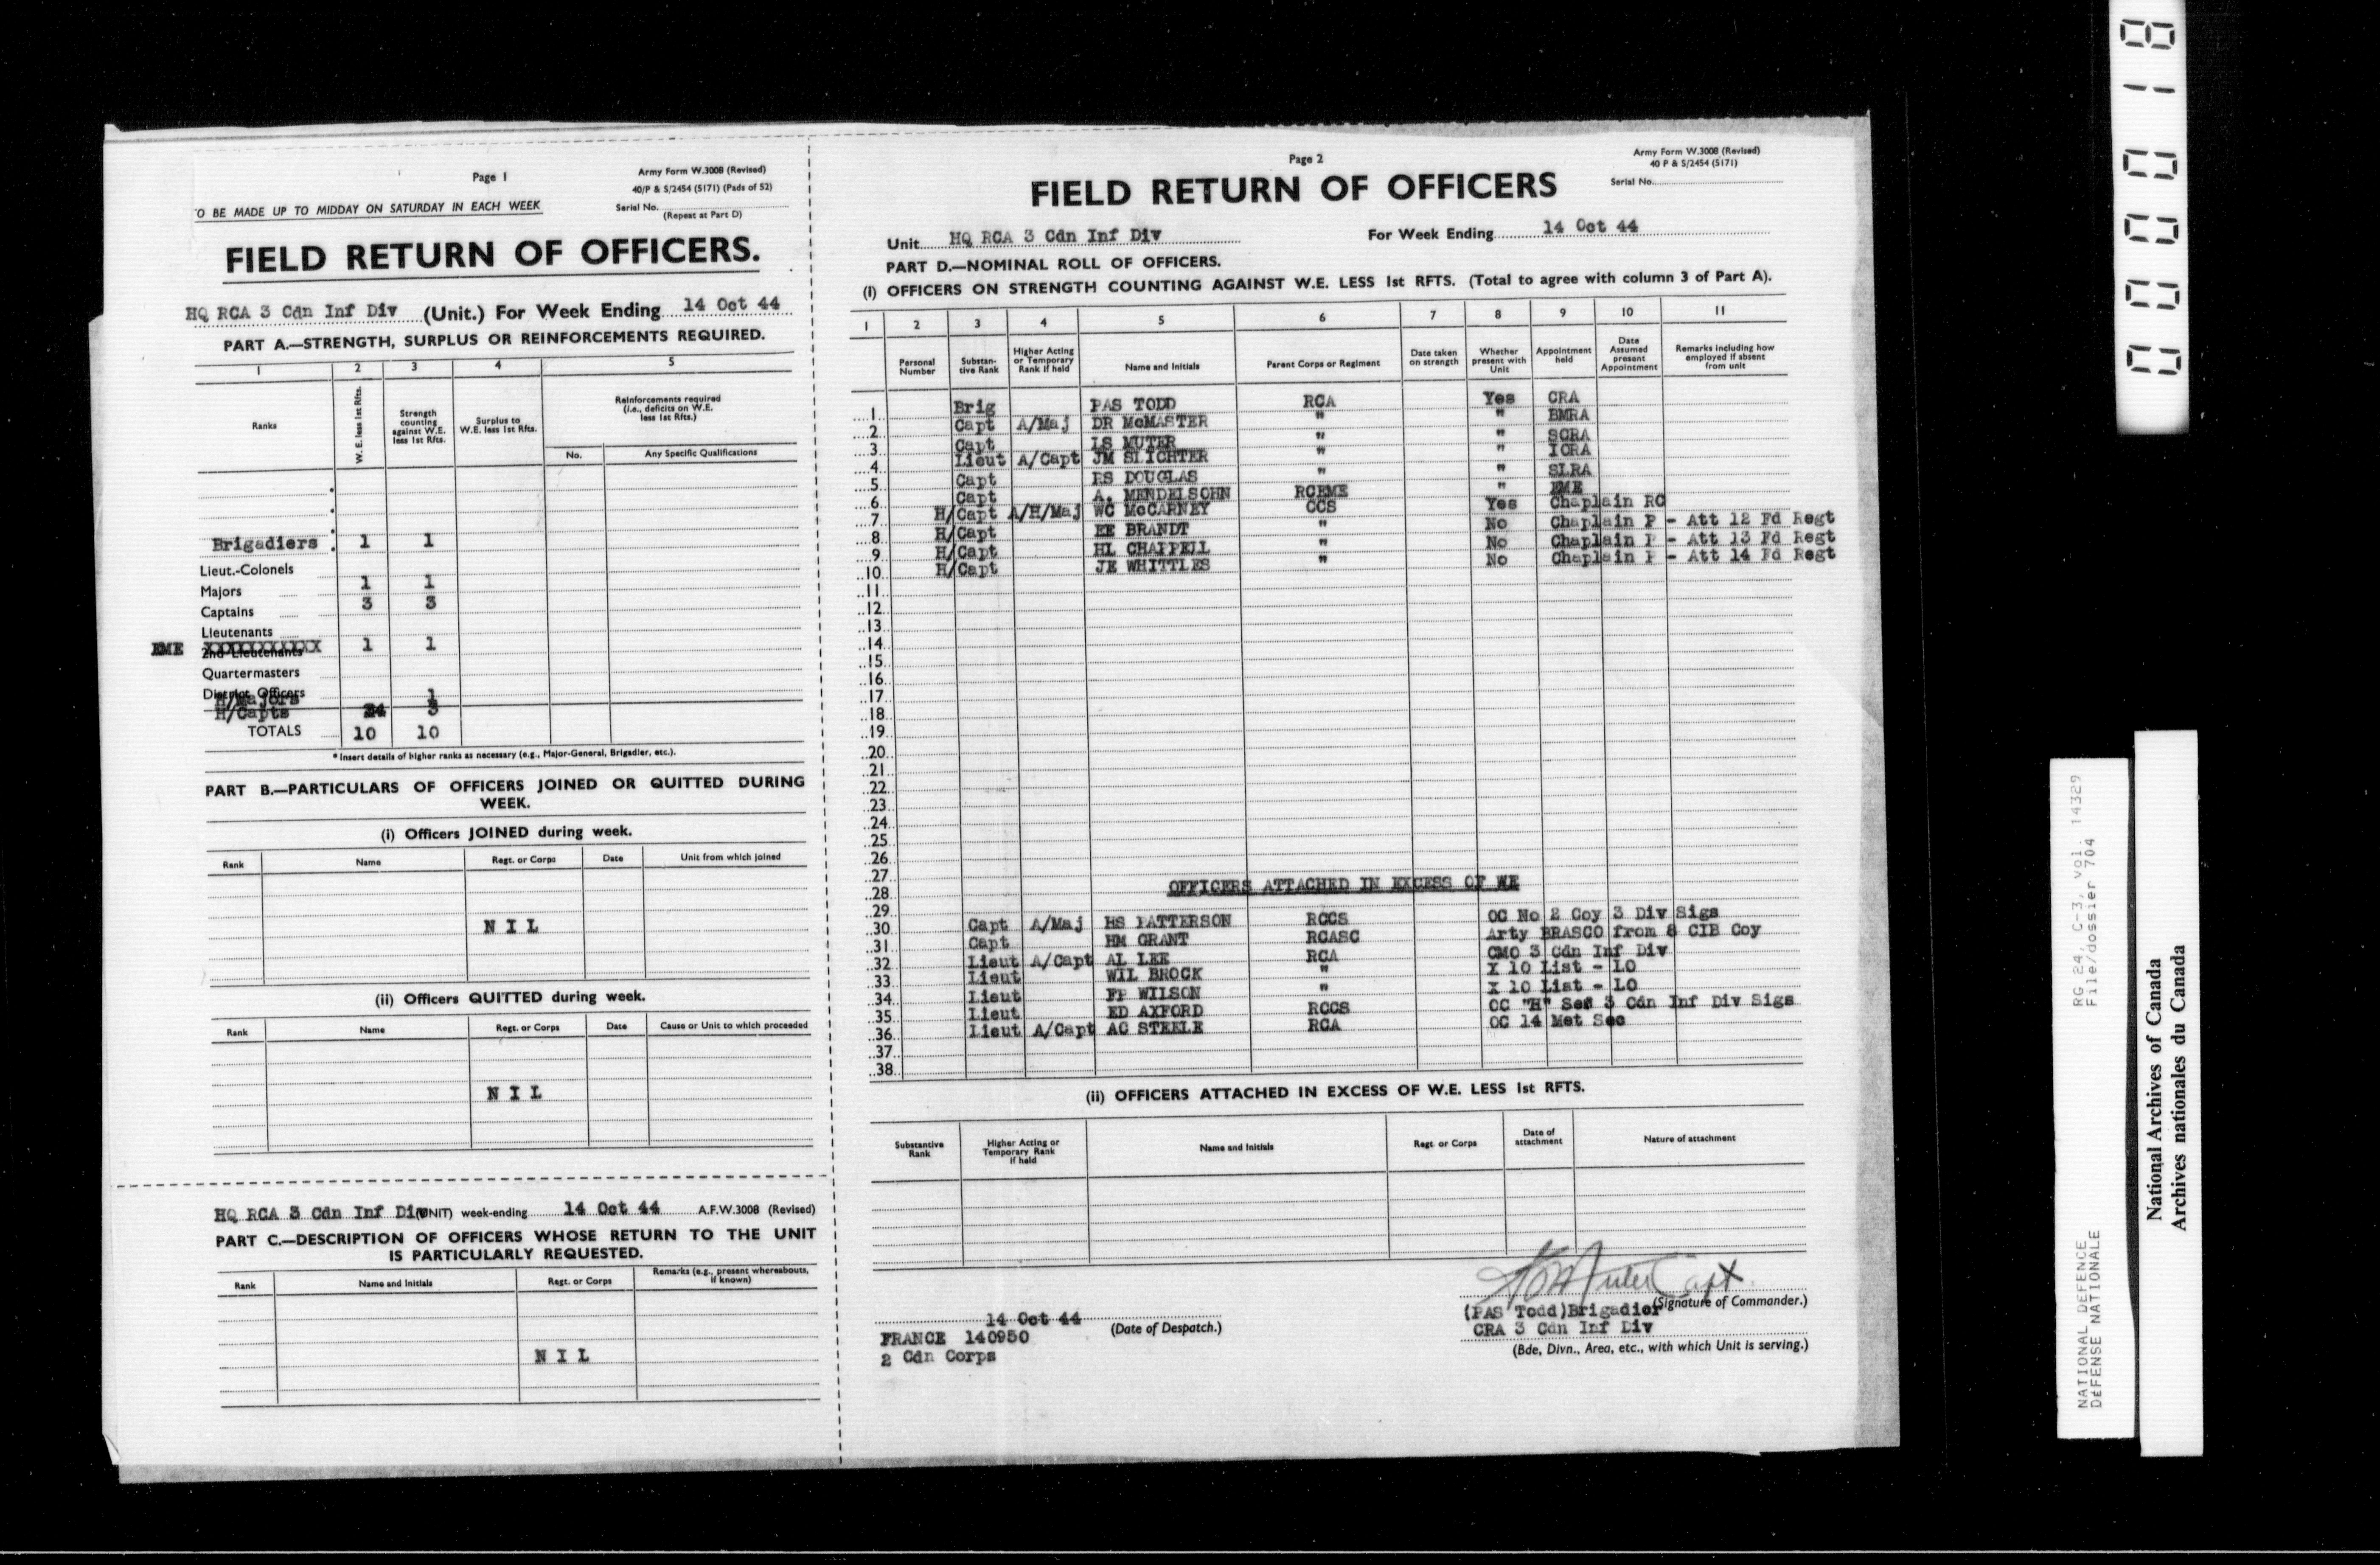 Page 1
Army Form W.3008 (Revised)
40/P & S/2454 (5171) (Pads of 52)
Serial No.
(Repeat at Part D)
O BE MADE UP TO MIDDAY ON SATURDAY IN EACH WEEK
FIELD RETURN OF OFFICERS.
HQ RCA 3 Cdn Inf Div (Unit.) For Week Ending 14 Oct 44
PART A.—STRENGTH, SURPLUS OR REINFORCEMENTS REQUIRED.
1 2 3 4 5
Ranks
W. E. less 1st Rfts.
Strength counting against W.E. less 1st Rfts.
Surplus to W.E. less 1st Rfts.
Reinforcements required (i.e., deficits on W.E. less 1st Rfts.)
No. Any Specific Qualifications
Brigadiers 1 1
Lieut.-Colonels
Majors 1 1
Captains 3 3
Lieutenants
EME 2nd Lieutenants 1 1
Quartermasters
District Officers
H/Majors 1
H/Capts 4 3
TOTALS 10 10
* Insert details of higher ranks as necessary (e.g., Major-General, Brigadier, etc.).
PART B.—PARTICULARS OF OFFICERS JOINED OR QUITTED DURING
WEEK.
(i) Officers JOINED during week.
Rank Name Regt. or Corps Date Unit from which joined
NIL
(ii) Officers QUITTED during week.
Rank Name Regt. or Corps Date Cause or Unit to which proceeded
NIL
HQ RCA 3 Cdn Inf Div (UNIT) week-ending 14 Oct 44 A.F.W.3008 (Revised)
PART C.—DESCRIPTION OF OFFICERS WHOSE RETURN TO THE UNIT
IS PARTICULARLY REQUESTED.
Rank Name and Initials Regt. or Corps Remarks (e.g., present whereabouts, if known)
NIL
Page 2
Army Form W.3008 (Revised)
40 P & S/2454 (5171)
Serial No.
FIELD RETURN OF OFFICERS
Unit HQ RCA 3 Cdn Inf Div For Week Ending 14 Oct 44
PART D.—NOMINAL ROLL OF OFFICERS.
(i) OFFICERS ON STRENGTH COUNTING AGAINST W.E. LESS 1st RFTS. (Total to agree with column 3 of Part A).
1 2 3 4 5 6 7 8 9 10 11
Personal Number
Substantive Rank
Higher Acting or Temporary Rank if held
Name and Initials
Parent Corps or Regiment
Date taken on strength
Whether present with Unit
Appointment held
Date Assumed present Appointment
Remarks including how employed if absent from unit
1 Brig PAS TODD RCA Yes CRA
2 Capt A/Maj DR McMASTER " " BMRA
3 Capt LS MUTER " " SCRA
4 Lieut A/Capt JM SLICHTER " " IORA
5 Capt RS DOUGLAS " " SLRA
6 Capt A. MENDELSOHN RCEME " EME
7 H/Capt A/H/Maj WC McCARNEY CCS Yes Chaplain RC
8 H/Capt EE BRANDT " No Chaplain P - Att 12 Fd Regt
9 H/Capt HL CHAPPELL " No Chaplain P - Att 13 Fd Regt
10 H/Capt JE WHITTLES " No Chaplain P - Att 14 Fd Regt
11
12
13
14
15
16
17
18
19
20
21
22
23
24
25
26
27
28 OFFICERS ATTACHED IN EXCESS OF WE
29
30 Capt A/Maj HS PATTERSON RCCS OC No 2 Coy 3 Div Sigs
31 Capt HM GRANT RCASC Arty BRASCO from 8 CIB Coy
32 Lieut A/Capt AL LEE RCA CMO 3 Cdn Inf Div
33 Lieut WIL BROCK " X 10 List - LO
34 Lieut FP WILSON " X 10 List - LO
35 Lieut ED AXFORD RCCS OC "H" Sec 3 Cdn Inf Div Sigs
36 Lieut A/Capt AC STEELE RCA OC 14 Met Sec
37
38
(ii) OFFICERS ATTACHED IN EXCESS OF W.E. LESS 1st RFTS.
Substantive Rank
Higher Acting or Temporary Rank if held
Name and Initials
Regt. or Corps
Date of attachment
Nature of attachment
Muter Capt
14 Oct 44 (Date of Despatch.)
FRANCE 140950
2 Cdn Corps
(PAS Todd)Brigadier (Signature of Commander.)
CRA 3 Cdn Inf Div
(Bde, Divn., Area, etc., with which Unit is serving.)
RG 24, C-3, vol. 14329
File/dossier 704
NATIONAL DEFENCE
DÉFENSE NATIONALE
National Archives of Canada
Archives nationales du Canada